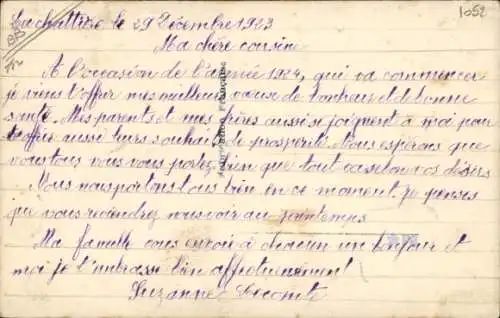 La chattière le 29 Décembre 1923
1052
Ma chère cousine
A l'occasion de l'année 1924, qui va commencer
je viens t'offrir mes meilleurs vœux de bonheur et de bonne
santé. Mes parents et mes frères aussi se joignent à moi pour
t'offrir aussi leurs souhaits de prosperité. Nous espérons que
vous tous vous vous portez bien que tout va selon vos désirs
Nous nous portons tous bien en ce moment. Je penses
que vous reviendrez nous voir au printemps
Ma famille vous envoie à chacun un bonjour et
moi je t'embrasse bien affectueusement!
Suzanne Lecomte